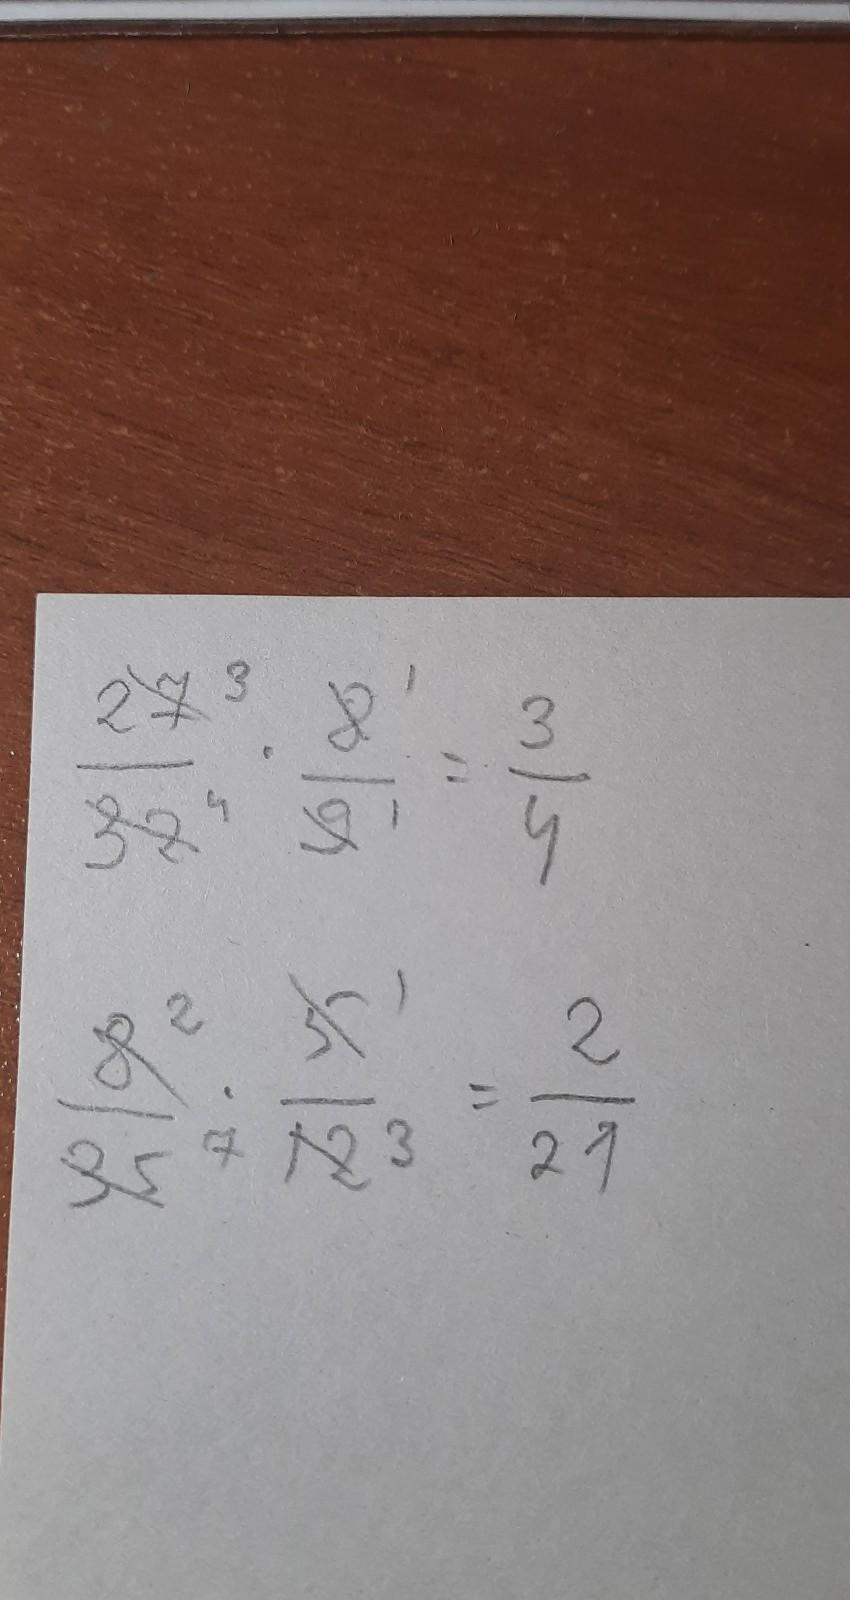 27 3 / 32 4 · 8 1 / 9 1 = 3 / 4
8 2 / 35 7 · 5 1 / 12 3 = 2 / 21